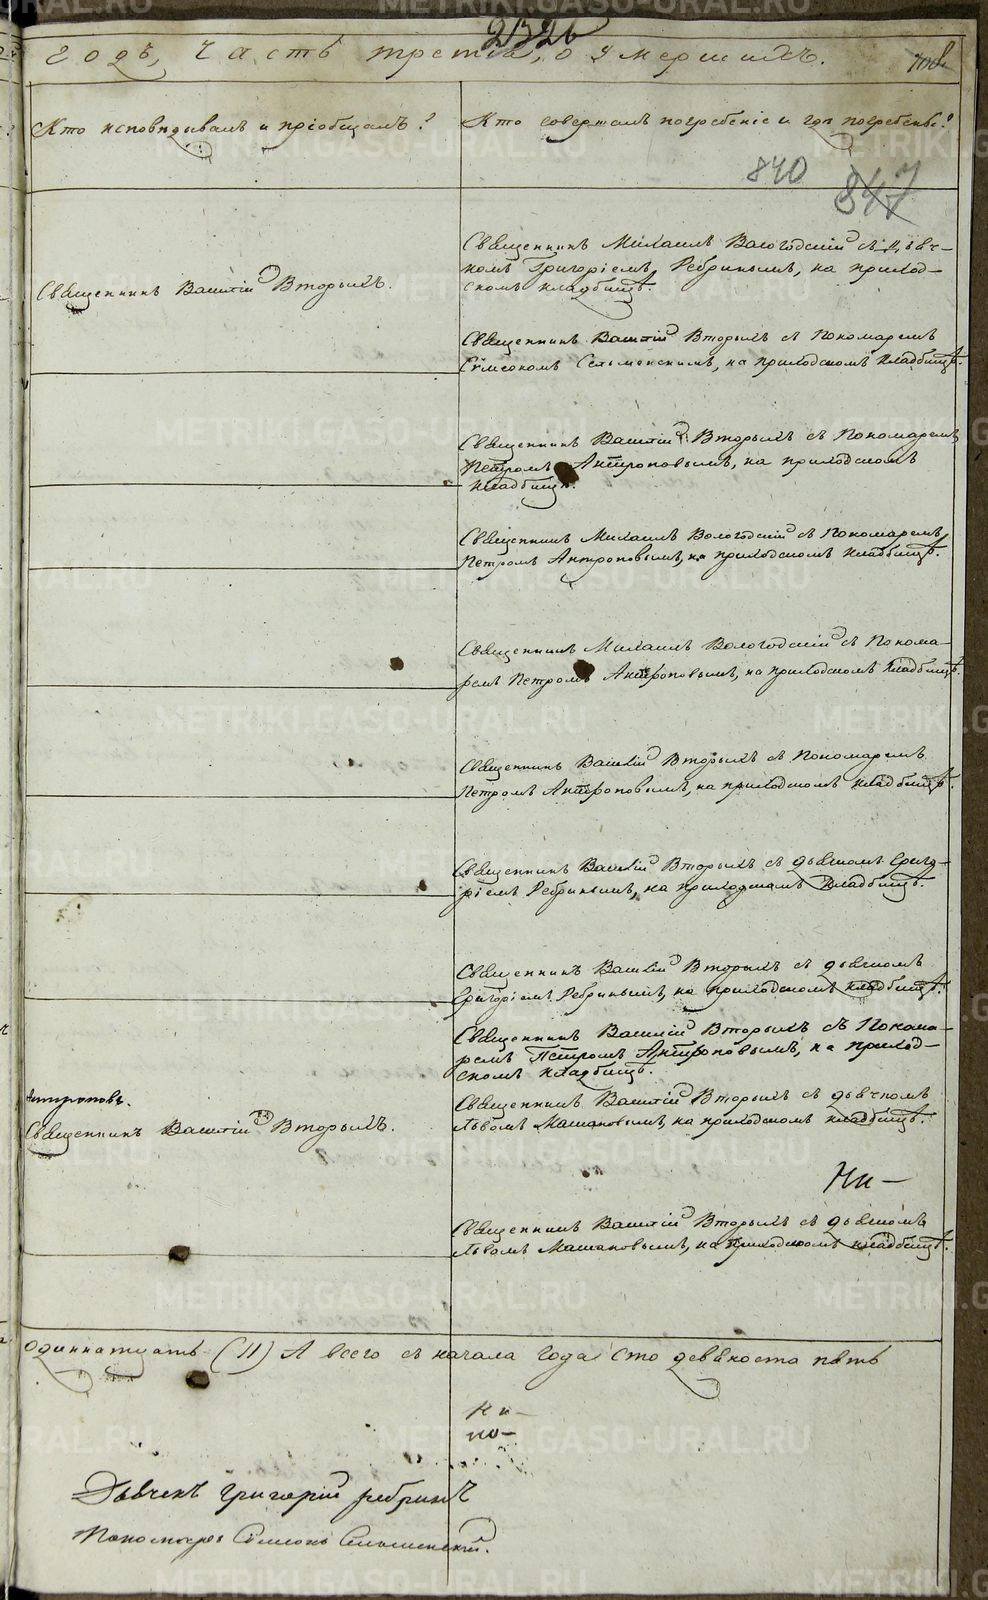 2326
годъ, часть третья, о умершихъ.
708
Кто исповѣдывалъ и пріобщалъ?
Кто совершалъ погребеніе и гдѣ погребены?
840
847
Священникъ Михаилъ Вологодскій съ дьяч-
комъ Григоріемъ Ребринымъ, на приход-
скомъ кладбищѣ.
Священникъ Василій Вторыхъ.
Священникъ Василій Вторыхъ съ Пономаремъ
Сѵмеономъ Сельменскимъ, на приходскомъ кладбищѣ.
Священникъ Василій Вторыхъ съ Пономаремъ
Петромъ Антроповымъ, на приходскомъ
кладбищѣ.
Священникъ Михаилъ Вологодскій съ Пономаремъ
Петромъ Антроповымъ, на приходскомъ кладбищѣ.
Священникъ Михаилъ Вологодскій съ Понома-
ремъ Петромъ Антроповымъ, на приходскомъ кладбищѣ.
Священникъ Василій Вторыхъ съ Пономаремъ
Петромъ Антроповымъ, на приходскомъ кладбищѣ.
Священникъ Василій Вторыхъ съ дьячкомъ Григо-
ріемъ Ребринымъ, на приходскомъ кладбищѣ.
Священникъ Василій Вторыхъ съ дьячкомъ
Григоріемъ Ребринымъ, на приходскомъ кладбищѣ.
Священникъ Василій Вторыхъ съ Понома-
ремъ Петромъ Антроповымъ, на приход-
скомъ кладбищѣ.
Антроповъ.
Священникъ Василій Вторыхъ.
Священникъ Василій Вторыхъ съ дьячкомъ
Львомъ Машановымъ, на приходскомъ кладбищѣ.
Ни-
Священникъ Василій Вторыхъ съ дьячкомъ
Львомъ Машановымъ, на приходскомъ кладбищѣ.
одиннатцать (11) А всего съ начала года сто девяносто пять
Ни-
но-
Дьячекъ Григорій Ребринъ
Пономарь Сѵмеонъ Сельменскій.
METRIKI.GASO-URAL.RU